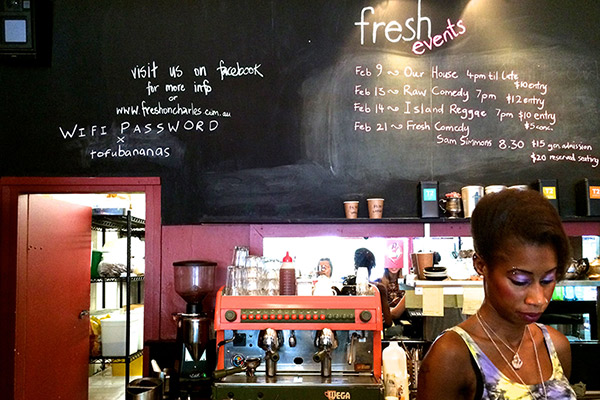 fresh
events
visit us on facebook
for more info
or
www.freshoncharles.com.au
WIFI PASSWORD
x
tofubananas
Feb 9 ~ Our House 4pm til late
$10 entry
Feb 13 ~ Raw Comedy 7pm $12 entry
Feb 14 ~ Island Reggae 7pm $10 entry
$5 conc.
Feb 21 ~ Fresh Comedy
Sam Simmons 8.30 $15 gen. admission
$20 reserved seating
T2
WEGA